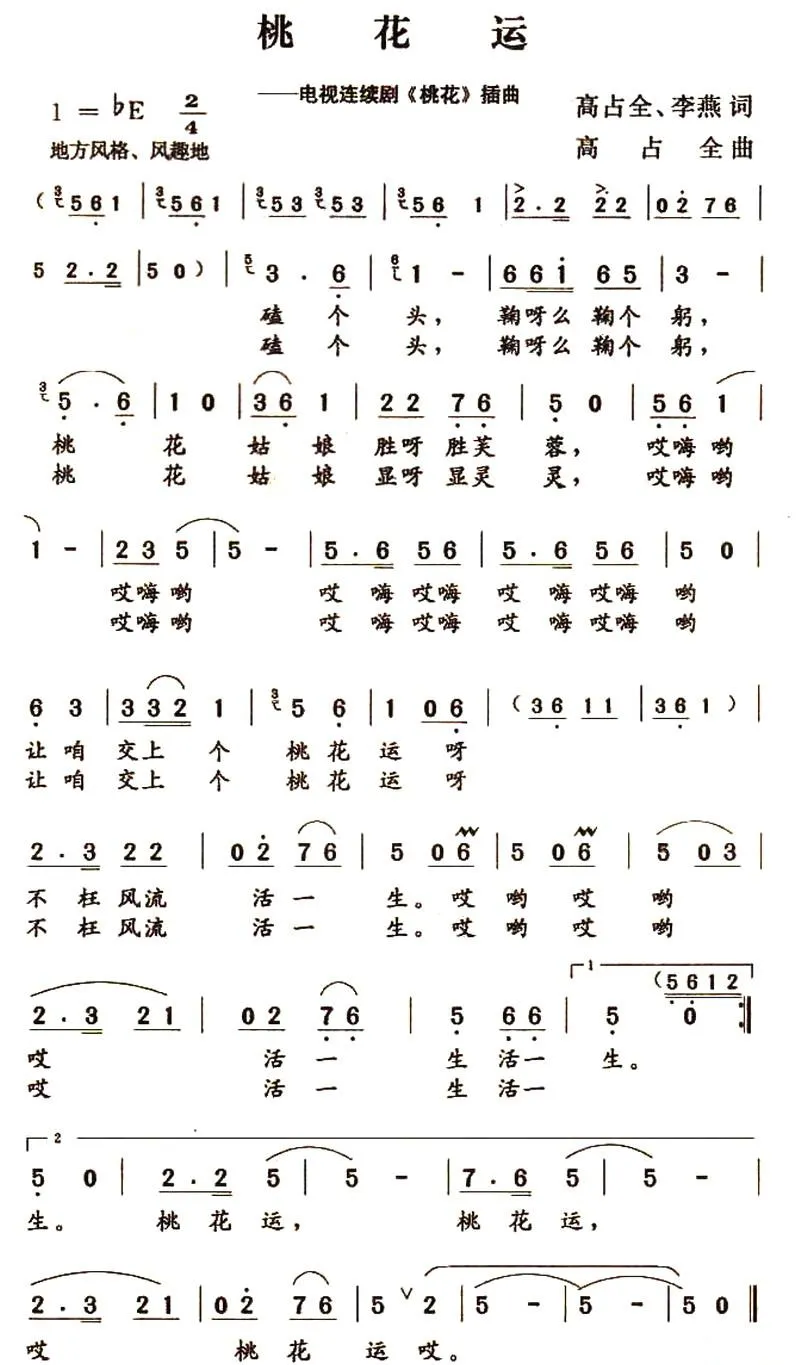 桃花运
——电视连续剧《桃花》插曲
1 = ♭E 2/4
高占全、李燕词
地方风格、风趣地
高占全曲
( 3 561 | 3 561 | 3 53 3 53 | 3 56 1 | 2·2 22 | 02 76 |
5 2·2 | 50 ) | 5 3 · 6 | 6 1 - | 661 65 | 3 - |
磕个头, 鞠呀么鞠个躬,
磕个头, 鞠呀么鞠个躬,
3 5 · 6 | 1 0 | 36 1 | 22 76 | 5 0 | 56 1 |
桃花姑娘胜呀胜芙蓉, 哎嗨哟
桃花姑娘显呀显灵灵, 哎嗨哟
1 - | 23 5 | 5 - | 5·6 56 | 5·6 56 | 5 0 |
哎嗨哟 哎嗨哎嗨 哎嗨哎嗨哟
哎嗨哟 哎嗨哎嗨 哎嗨哎嗨哟
6 3 | 332 1 | 3 5 6 | 1 06 | ( 36 11 | 36 1 ) |
让咱交上个桃花运呀
让咱交上个桃花运呀
2·3 22 | 02 76 | 5 06 | 5 06 | 5 03 |
不枉风流活一生。哎哟哎哟
不枉风流活一生。哎哟哎哟
1
(5612
2·3 21 | 02 76 | 5 66 | 5 0 :|
哎活一生活一生。
哎活一生活一
2
5 0 | 2·2 5 | 5 - | 7·6 5 | 5 - |
生。桃花运, 桃花运,
2·3 21 | 02 76 | 5 ∨ 2 | 5 - | 5 - | 5 0 ‖
哎桃花运哎。